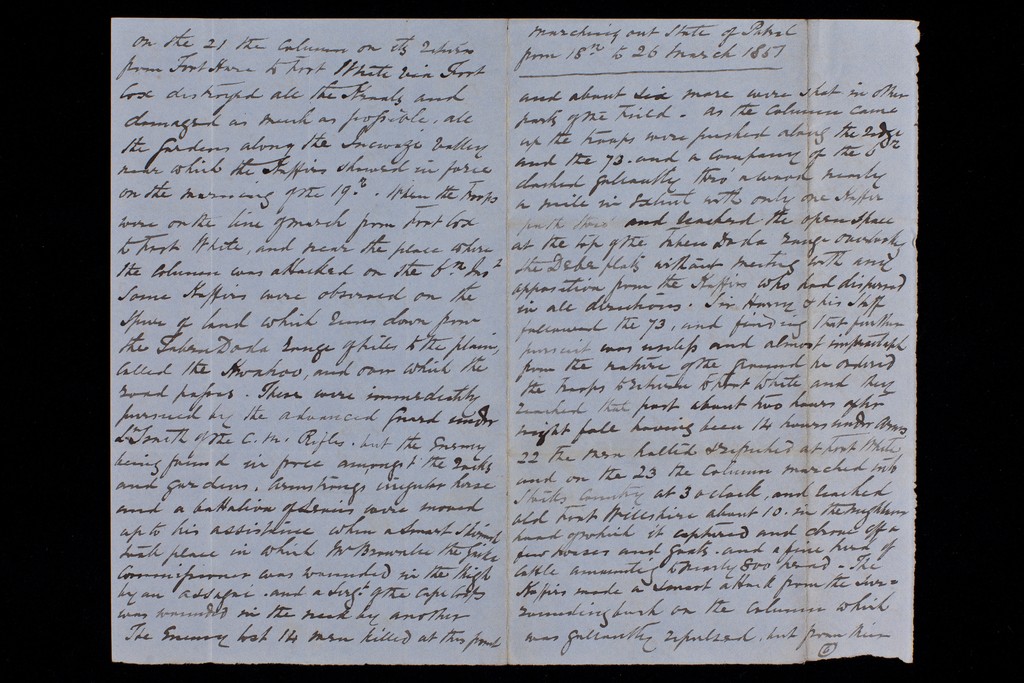 on the 21 the Column on its return
from Fort Hare to Fort White via Fort
Cox destroyed all the Kraals and
damaged as much as possible, all
the Gardens along the Valley
near which the Kaffirs showed in force
on the morning of the 19th. When the troops
were on the line of march from Fort Cox
to Fort White, and near the place where
the Column was attacked on the 6th Inst
Some Kaffirs were observed on the
Spur of land which runs down from
the Taben Doda range of hills to the plain,
called the , and over which the
road passes. These were immediately
pursued by the advanced Guard under
Lt Smith of the C. M. Rifles. but the Enemy
being found in force amongst the rocks
and gardens, Armstrongs irregular horse
and a battalion of Levies were moved
up to his assistance when a smart Skirmish
took place in which Mr Brownlee the Gaika
Commissioner was wounded in the thigh
by an assagai. and a Sergt of the Cape Corps
was wounded in the neck by another
The Enemy lost 14 men killed at this point
Marching out State of Patrol
from 18th to 26 March 1851
and about six more were shot in other
parts of the Field. As the Column came
up the troops were pushed along the ridge
and the 73. and a company of the 6th
dashed gallantly thro' a wood nearly
a mile in extent with only one Kaffir
path thro' and reached the open space
at the top of the Taben Doda range overlook
the Debe flats without meeting with any
opposition from the Kaffirs who had dispersed
in all directions. Sir Harry & his Staff
followed the 73. and finding that further
pursuit was useless and almost impracticable
from the nature of the ground he ordered
the troops to return to Fort White and they
reached that post about two hours after
night fall having been 14 hours under Arms
22 the men halted & refreshed at Fort White
and on the 23 the Column marched into
Stocks Country at 3 o clock, and reached
old Fort Willshire about 10. in the neighbour
hood of which it captured and drove off a
few horses and goats. and a fine herd of
cattle amounting to nearly 800 head. The
Kaffirs made a smart attack from the sur=
rounding bush on the Column which
was gallantly repulsed, but from